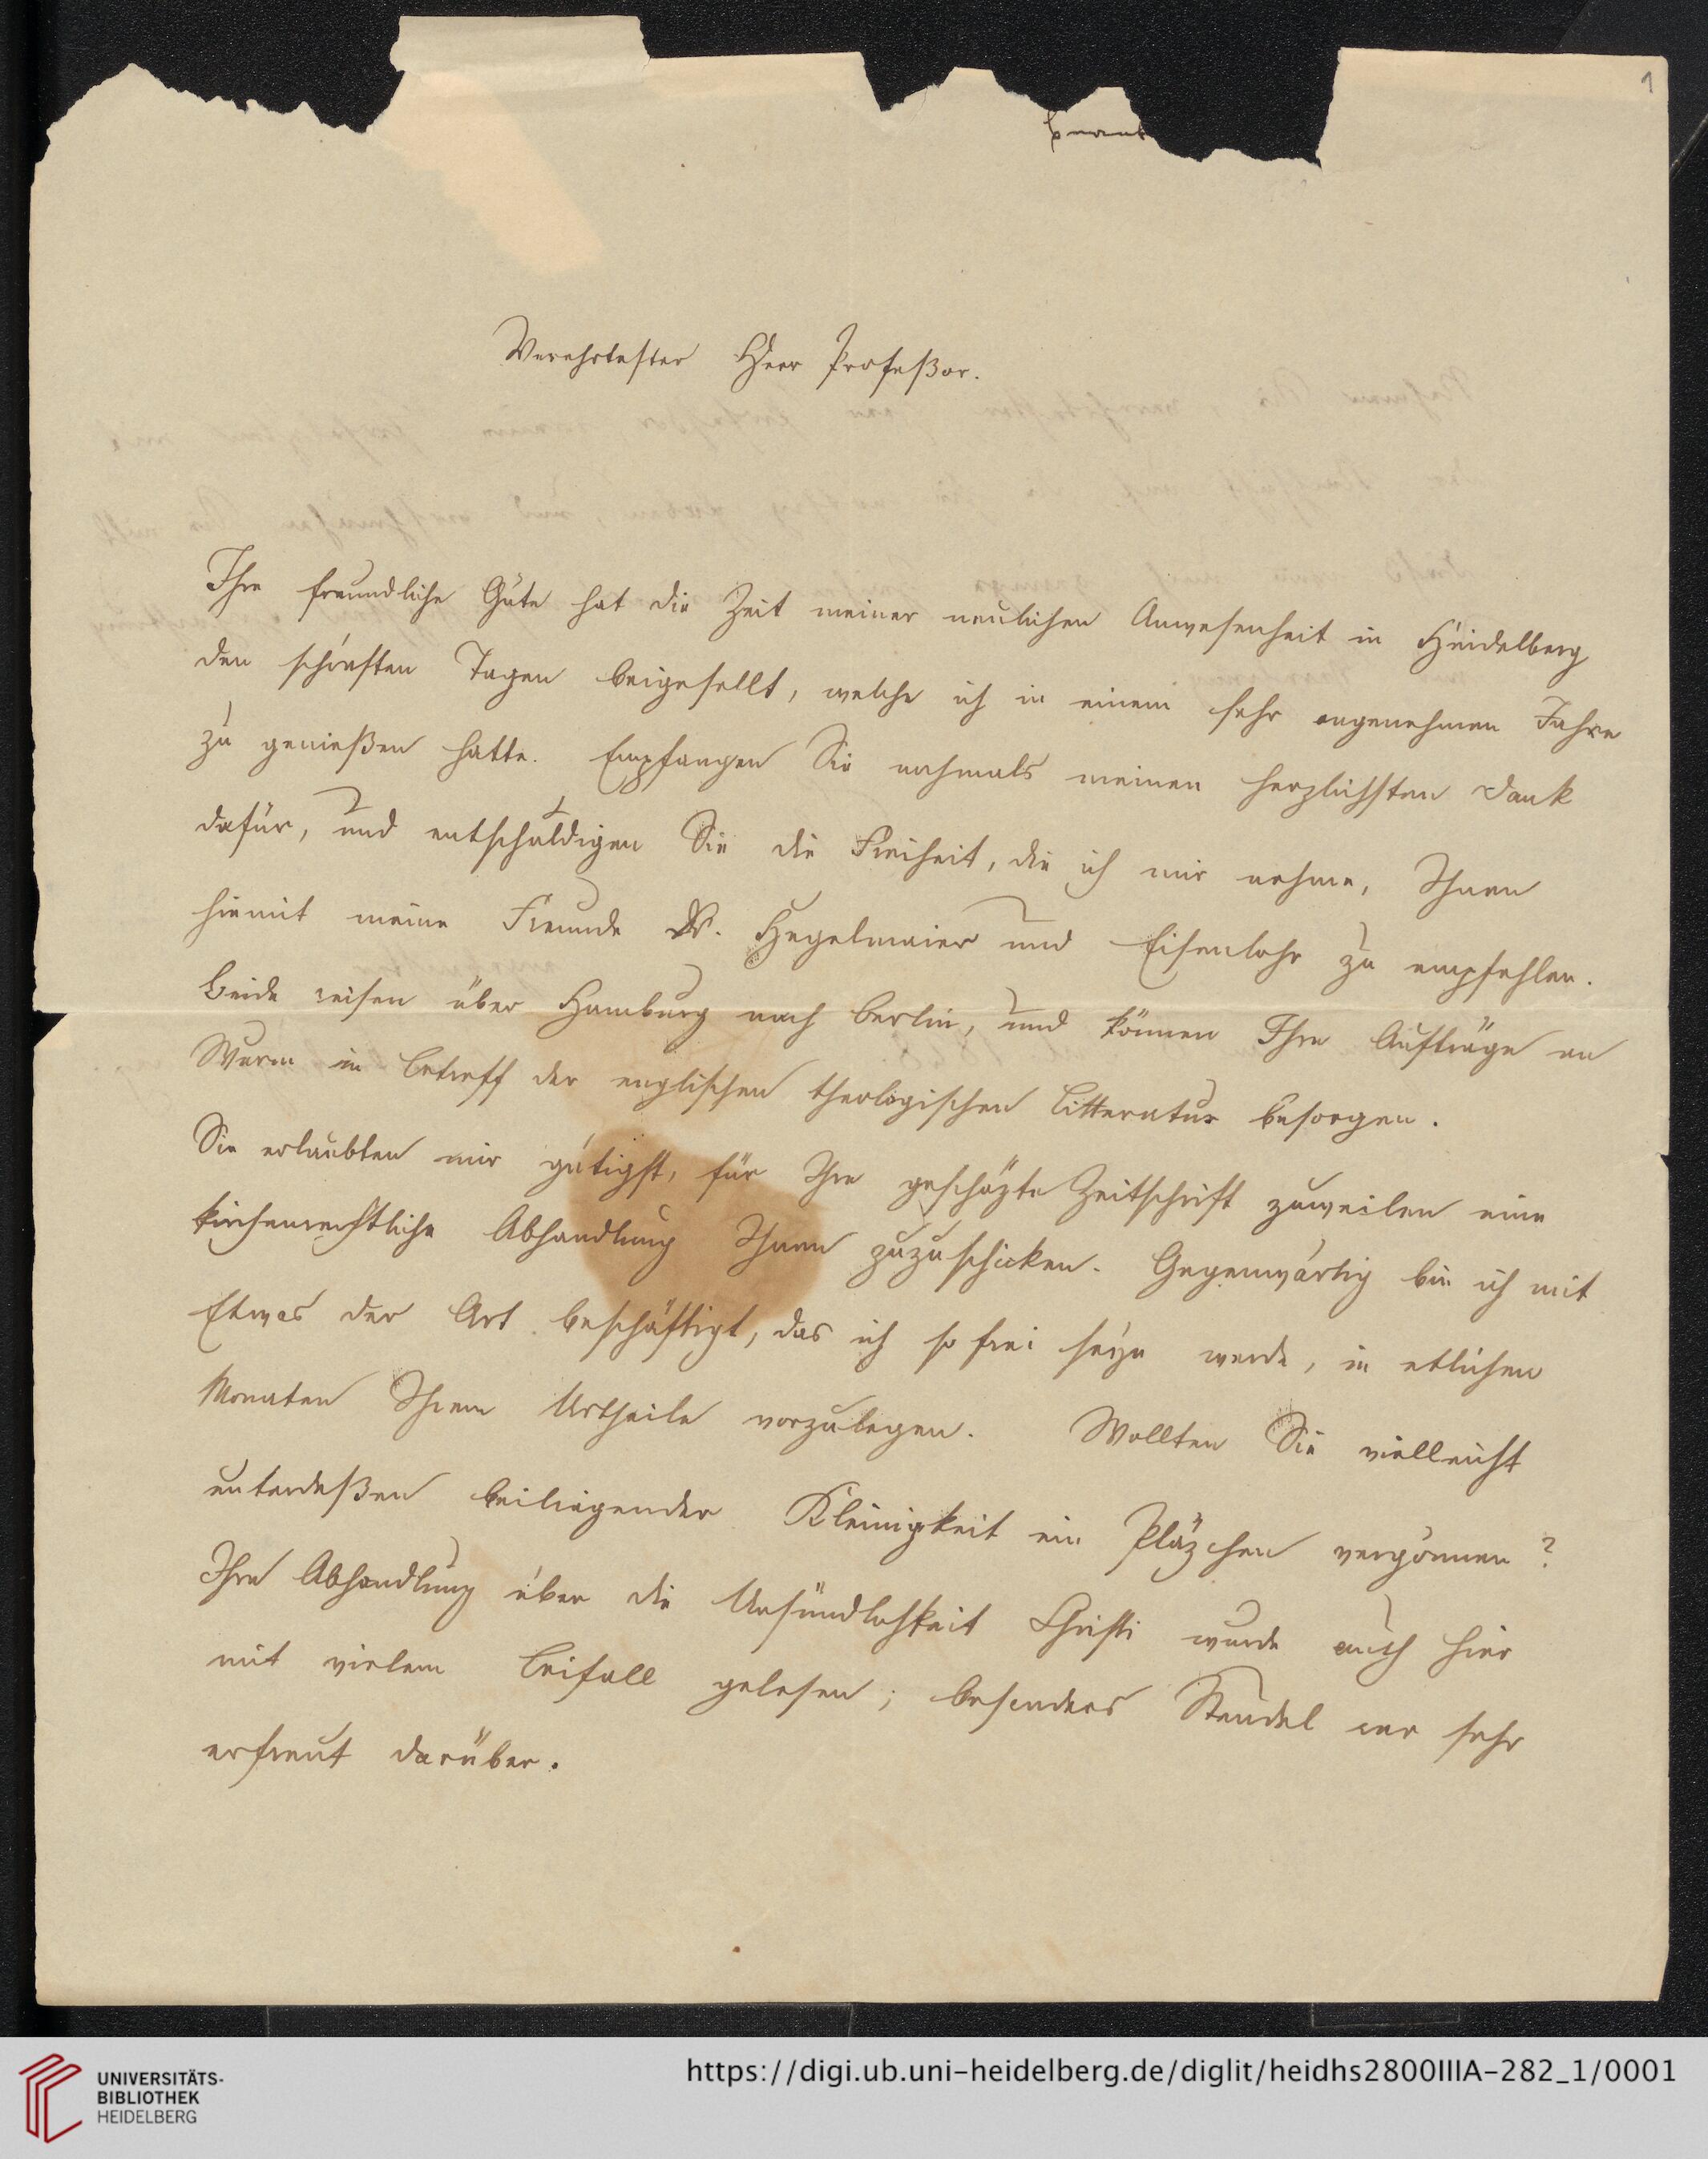 1
Verehrtester Herr Profeßor.
Ihre freundliche Güte hat die Zeit meiner neulichen Anwesenheit in Heidelberg
den schönsten Tagen beigesellt, welche ich in einem sehr angenehmen Jahre
zu genießen hatte. Empfangen Sie nochmals meinen herzlichsten Dank
dafür, und entschuldigen Sie die Freiheit, die ich mir nehme, Ihnen
hiemit meine Freunde Dr. Hegelmaier und Eisenlohr zu empfehlen.
Beide reisen über Hamburg nach Berlin, und können Ihre Aufträge an
Wurm in Betreff der englischen theologischen Litteratur besorgen.
Sie erlaubten mir gütigst, für Ihre geschäzte Zeitschrift zuweilen eine
kirchenrechtliche Abhandlung Ihnen zuzuschicken. Gegenwärtig bin ich mit
Etwas der Art beschäftigt, das ich so frei seyn werde, in etlichen
Monaten Ihrem Urtheile vorzulegen. Wollten Sie vielleicht
unterdeßen beiliegender Kleinigkeit ein Pläzchen vergönnen?
Ihre Abhandlung über die Unsündlichkeit Christi wurde auch hier
mit vielem Beifall gelesen; besonders Steudel war sehr
erfreut darüber.
UNIVERSITÄTS-
BIBLIOTHEK
HEIDELBERG
https://digi.ub.uni-heidelberg.de/diglit/heidhs2800IIIA-282_1/0001